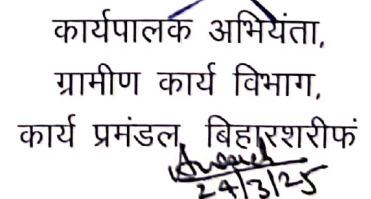 कार्यपालक अभियंता,
ग्रामीण कार्य विभाग,
कार्य प्रमंडल, बिहारशरीफ
24/3/25